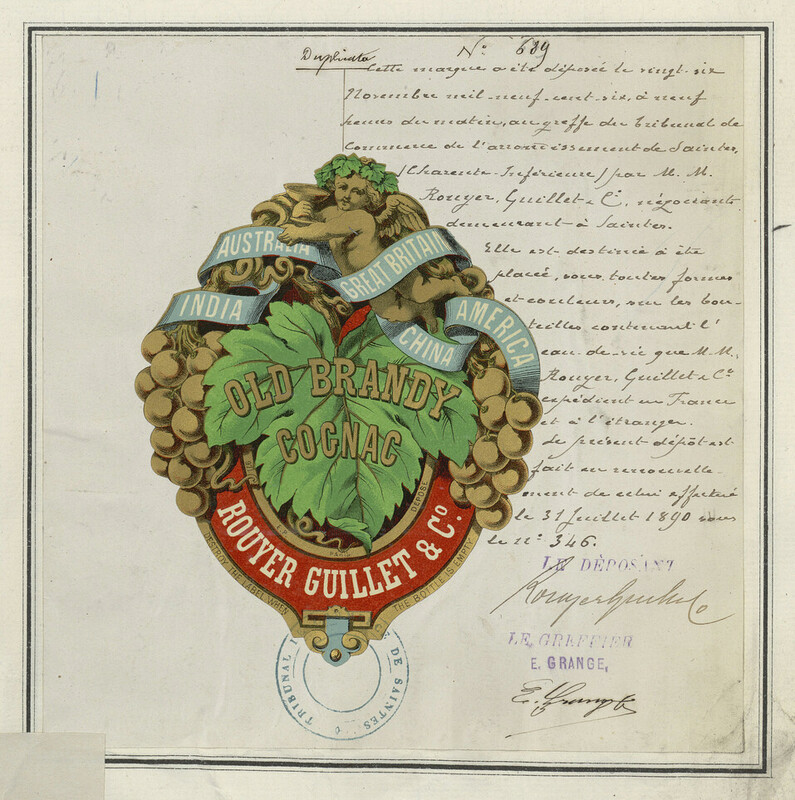 Duplicata
N° 689
Cette marque a été déposée le vingt-six
Novembre mil-neuf-cent-six, à neuf
heures du matin, au greffe du Tribunal de
Commerce de l'arrondissement de Saintes,
(Charente-Inférieure) par M. M.
Rouyer, Guillet & Cie, négociants
demeurant à Saintes.
Elle est destinée à être
placée, sous toutes formes
et couleurs, sur les bou-
teilles contenant l'
eau-de-vie que M. M.
Rouyer, Guillet & Co
expédient en France
et à l'étranger.
Le présent dépôt est
fait en renouvelle-
ment de celui effectué
le 31 Juillet 1890 sous
le n° 346.
LE DÉPOSANT
Rouyer Guillet & Co
LE GREFFIER
E. GRANGE,
E. Grange
AUSTRALIA
GREAT BRITAIN
INDIA
CHINA
AMERICA
OLD BRANDY
COGNAC
DÉPOSÉ
PARIS
ROUYER GUILLET & Co.
DESTROY THE LABEL WHEN
THE BOTTLE IS EMPTY
TRIBUNAL
DE SAINTES